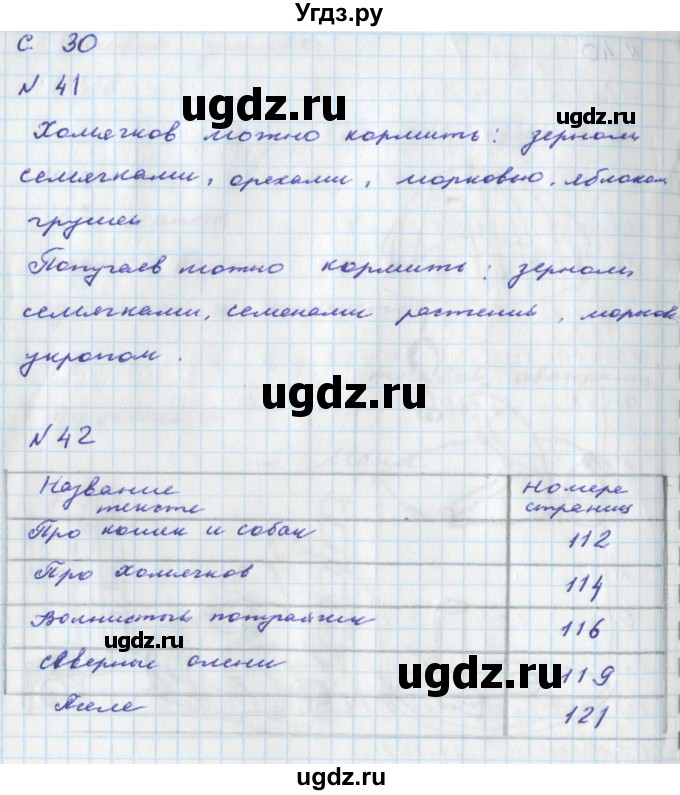 Угдз.ру
С. 30
ugdz.ru
N 41
ugdz.ru
Хомячков можно кормить: зерном
семячками, орехами, морковью, яблоком,
грушей
Попугаев можно кормить: зерном,
семячками, семенами растений, морков
укропом.
ugdz.ru
N 42
Название текста Номера страниц
Про кошек и собак 112
Про хомячков 114
Волнистый попугайчик 116
ugdz.ru
Северные олени 119
ugdz.ru
121
ugdz.ru